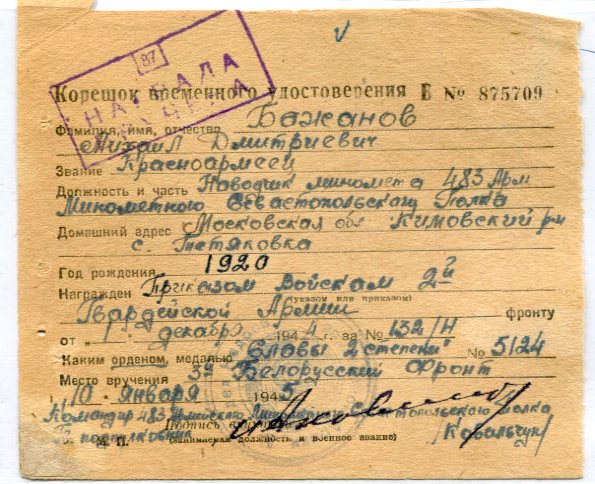 87
НАГРАДА
Корешок временного удостоверения Е № 875709
Фамилия, имя, отчество Бажанов
Михаил Дмитриевич
Звание Красноармеец
Должность и часть Наводчик миномета 483 Арм
Минометного Севастопольского Полка
Домашний адрес Московская обл Кимовский р-н
с. Тетяковка
Год рождения 1920
Награжден Приказом Войскам 2й
(указом или приказом)
Гвардейской Армии фронту
от „ декабря 1944 г. за № 132/Н
Каким орденом, медалью „Славы 2 степени" № 5124
Место вручения 3й Белорусский Фронт
10 января 1945
Командир 483 Армейского Минометного Севастопольского Полка
Подполковник Подпись /Ковальчук/
М. П. (занимаемая должность и военное звание)